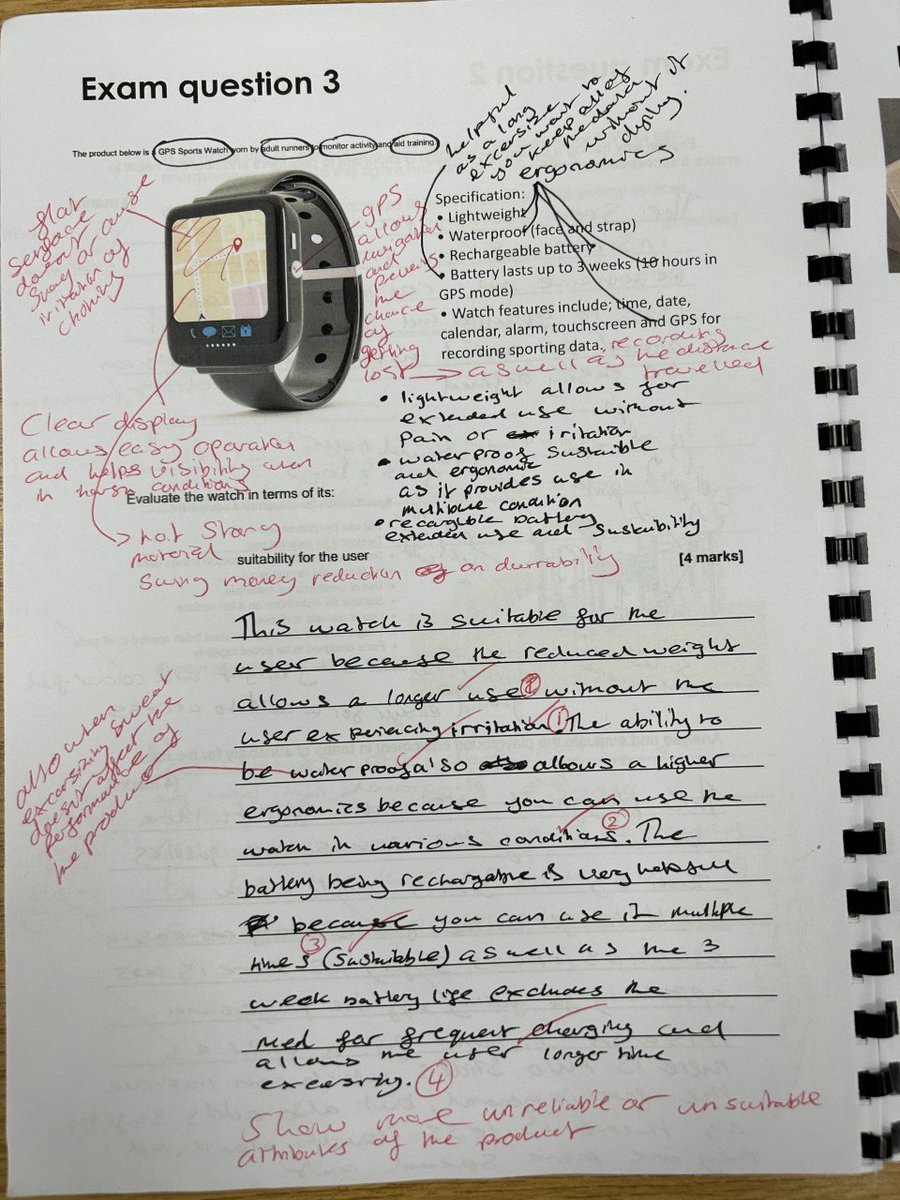 Exam question 3
helpful
as a long
excersize
you want to
keep all of
the data
without it
dying.
The product below is a GPS Sports Watch worn by adult runners to monitor activity and aid training.
ergonomics
Specification:
• Lightweight
• Waterproof (face and strap)
• Rechargeable battery
• Battery lasts up to 3 weeks (10 hours in
GPS mode)
• Watch features include; time, date,
calendar, alarm, touchscreen and GPS for
recording sporting data. recording
as well as the distance
travelled
flat
surface
doesnt
snag or cause
irritation of
clothing
GPS
allows
navigation
and
prevents
the
chance
of
getting
lost
Clear display
allows easy operation
and helps visibility when
in harsh conditions
• lightweight allows for
extended use without
pain or irritation
• waterproof sustaible
and ergonomic
as it provides use in
multible condition
• recargible battery
extended use and sustuibility
Evaluate the watch in terms of its:
not strong
material
suitability for the user
[4 marks]
saving money reduction on durrability
This watch is suitable for the
user because the reduced weight
allows a longer use without the
user experiencing irritation. ① The ability to
be waterproof also allows a higher
ergonomics because you can use the
watch in various conditions. ② The
battery being rechargable is very helpfull
because you can use it multiple
times ③ (sustaibble) aswell as the 3
week battery life excludes the
need for frequent charging and
allows the user longer time
excersing. ④
also when
excersizing sweat
doesnt affect the
performance of
the product
Show more unreliable or unsuitable
attributes of the product